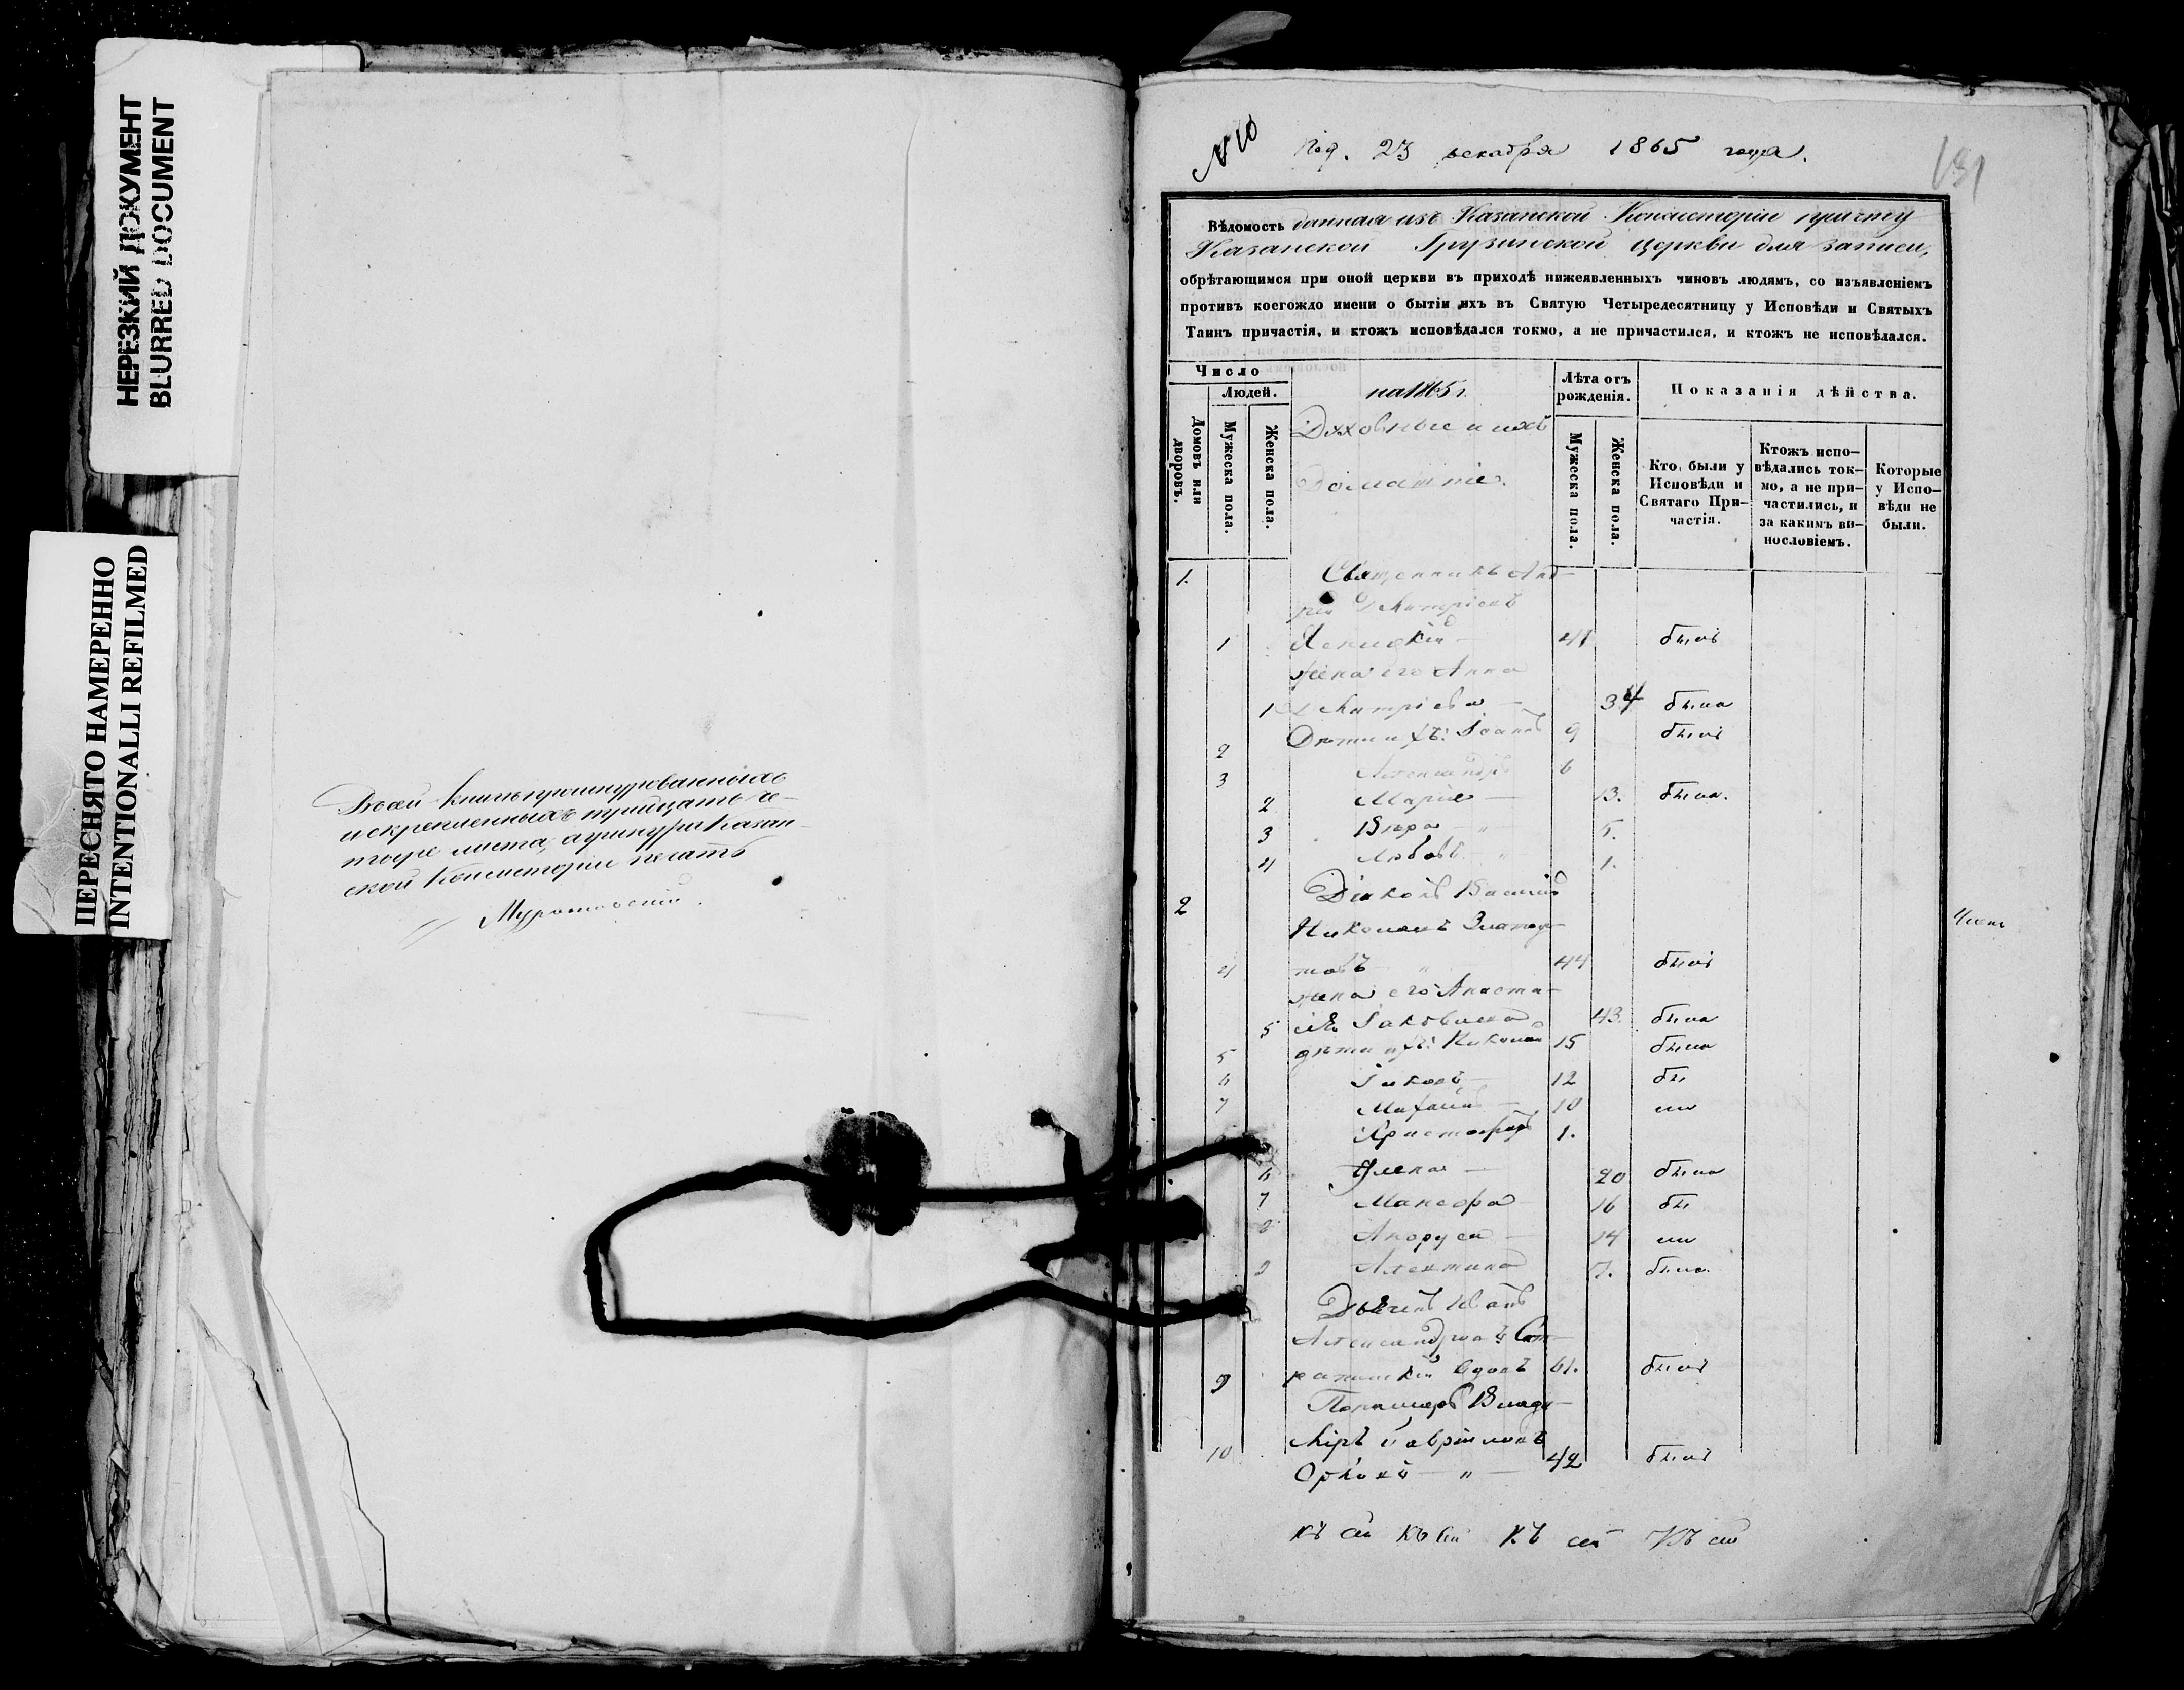 НЕРЕЗКИЙ ДОКУМЕНТ
BLURRED DOCUMENT
ПЕРЕСНЯТО НАМЕРЕННО
INTENTIONALLI REFILMED
Въ сей книгѣ прошнурованныхъ
и скрепленныхъ тридцать че-
тыре листа, а при шнурѣ Казан-
ской Консисторіи печать
N 10
23 декабря 1865 года.
131
Вѣдомость данная изъ Казанской Консисторіи причту
Казанской Грузинской церкви для записи,
обрѣтающимся при оной церкви въ приходѣ нижеявленныхъ чиновъ людямъ, со изъявленіемъ
противъ коегождо имени о бытіи ихъ въ Святую Четыредесятницу у Исповѣди и Святыхъ
Таинъ причастія, и ктожъ исповѣдался токмо, а не причастился, и ктожъ не исповѣдался.
Число
Домовъ или дворовъ.
Людей.
Мужеска пола.
Женска пола.
на 1865 г.
Духовные и ихъ
Домашніе.
Лѣта отъ рожденія.
Мужеска пола.
Женска пола.
Показанія дѣйства.
Кто были у Исповѣди и Святаго Причастія.
Ктожъ исповѣдались токмо, а не причастились, и за какимъ винословіемъ.
Которые у Исповѣди не были.
1. Священникъ Анд-
рей Дмитріевъ
1 41 былъ
жена его Анна
1 Дмитріева — 34 была
2 Дѣти ихъ: Іоаннъ 9 былъ
3 Александръ 6
2 Марія — 13. была.
3 Вѣра — " 5.
4 Любовь — " 1.
2 Діаконъ Василій
Николаевъ Златоу-
4 товъ " 44 былъ
жена его Анаста-
5 сія Іаковлева 43. была
5 дѣти ихъ: Николай 15 была
6 Іаковъ — 12 бы
7 Михаилъ — 10 ли
Христофоръ 1.
6 Елена — 20 была
7 Манефа 16 бы
8 14 ли
9 Алевтина 7. была.
Дьячекъ Иванъ
9 вдовъ 61. былъ
Пономарь Влади-
10 міръ Гавріиловъ
— " — 42 былъ
къ сей къ сей къ сей къ сей